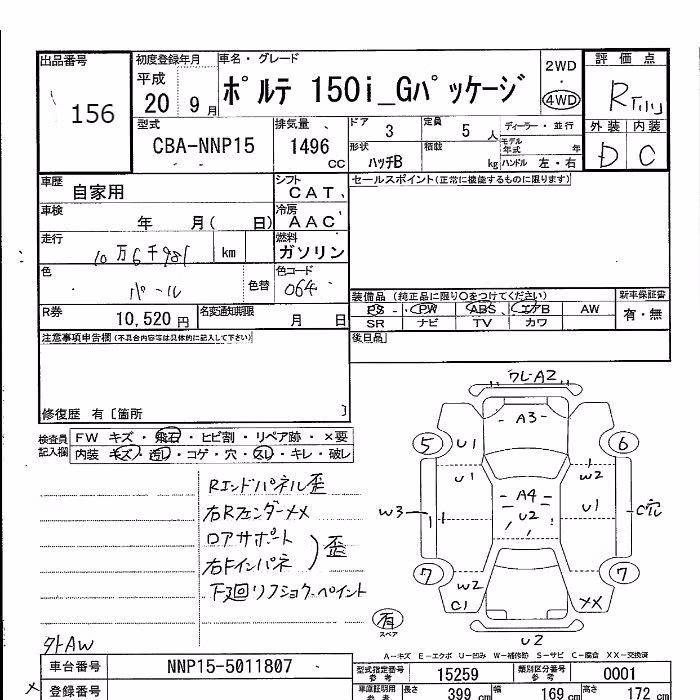 出品番号
156
初度登録年月
平成
20 9月
車名・グレード
ポルテ 150i_Gパッケージ
2WD
・
4WD
評価点
R
外装 内装
D C
型式
CBA-NNP15
排気量
1496
CC
ドア 3
定員 5人
形状 ハッチB
積載 kg
ディーラー・並行
モデル年式 年
ハンドル 左・右
車歴 自家用
シフト CAT
車検 年 月( 日)
冷房 AAC
走行 10万6千981 km
燃料 ガソリン
色 パール 色替
色コード 064
R券 10,520円
名変通知期限 月 日
セールスポイント(正常に機能するものに限ります)
装備品(純正品に限り○をつけてください)
新車保証書
PS PW ABS エアB AW
有・無
SR ナビ TV カワ
後日品
注意事項申告欄(不具合内容等は具体的に記入して下さい)
修復歴 有〔箇所 〕
検査員記入欄
FW キズ・飛石・ヒビ割・リペア跡・×要
内装 キズ・汚し・コゲ・穴・スレ・キレ・破レ
Rエンドパネル歪
右Rフェンダー××
ロアサポート
右Fインパネ
)歪
下廻リフショク・ペイント
外AW
ワレ-A2
A3
5
6
U1
U1
W2
W3
A4
U2
U1
C穴
7
7
W2
C1
XX
有
スペア
U2
A-キズ E-エクボ U-凹み W-補修跡 S-サビ C-腐食 XX-交換済
車台番号 NNP15-5011807
登録番号
型式指定番号 参考 15259
類別区分番号 参考 0001
車庫証明用 参考
長さ 399 cm
幅 169 cm
高さ 172 cm